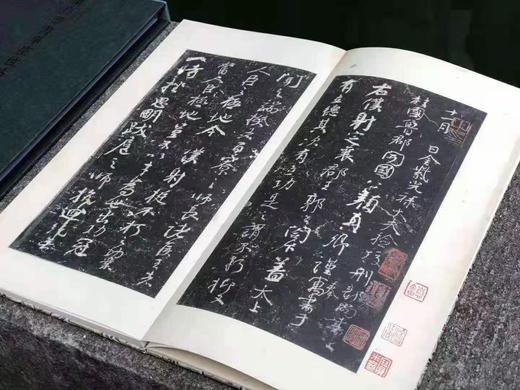 十一月
日金紫光祿大夫檢校刑部尚書上
柱國魯郡開國公顏真卿謹奉書于
右僕射定襄郡王郭公閣下蓋太上
有立德其次有立功是之謂不朽抑又
聞之端揆者百寮之師長諸侯王者
人臣之極地今僕射挺不朽之功業
當人臣極地豈不以才為世出功冠
一時挫思明跋扈之師抗迴紇